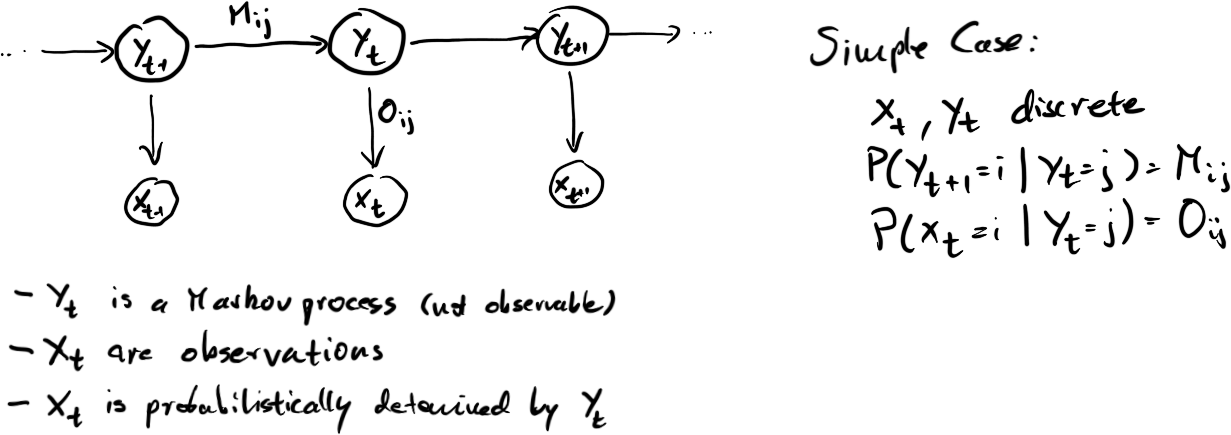 M_ij
... Y_t-1 Y_t Y_t+1 ...
O_ij
X_t-1 X_t X_t+1
Simple Case:
X_t, Y_t discrete
P(Y_t+1 = i | Y_t = j) = M_ij
P(X_t = i | Y_t = j) = O_ij
- Y_t is a Markov process (not observable)
- X_t are observations
- X_t is probabilistically determined by Y_t